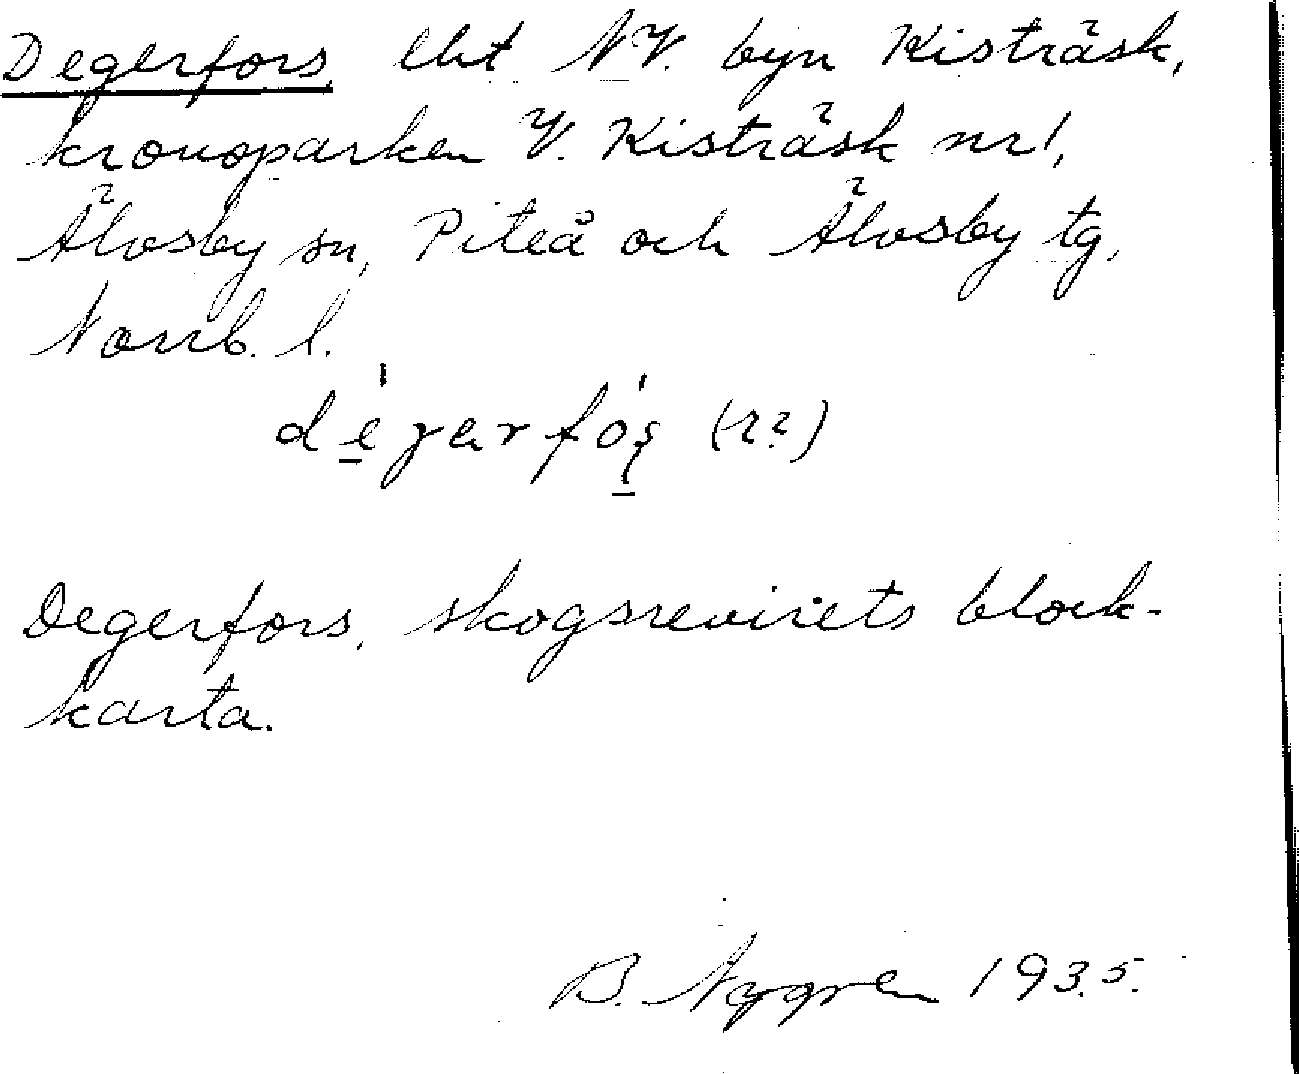 Degerfors, lht NV. byn Kisträsk,
kronoparken V. Kisträsk nr 1,
Älvsby sn, Piteå och Älvsby tg,
Norrb. l.
(-r?)
Degerfors, skogsrevirets block-
karta.
B. Nygren 1935.